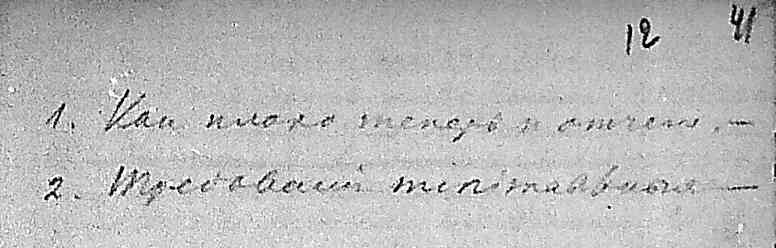 12 41
1. Как плохо теперь и отчего. —
2. Требований —